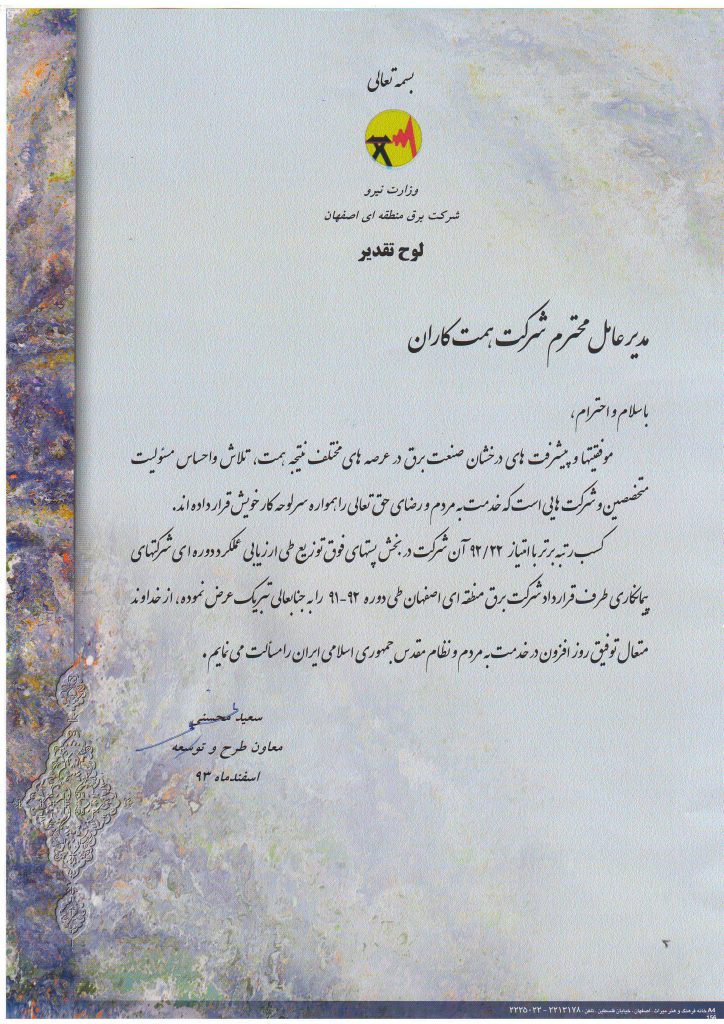 بسمه تعالی
وزارت نیرو
شرکت برق منطقه ای اصفهان
لوح تقدیر
مدیرعامل محترم شرکت همت کاران
باسلام و احترام،
موفقیتها و پیشرفت های درخشان صنعت برق در عرصه های مختلف نتیجه همت، تلاش و احساس مسئولیت
متخصصین و شرکت هایی است که خدمت به مردم و رضای حق تعالی را همواره سرلوحه کار خویش قرار داده اند.
کسب رتبه برتر با امتیاز ۹۲/۲۲ آن شرکت در بخش پستهای فوق توزیع طی ارزیابی عملکرد دوره ای شرکتهای
پیمانکاری طرف قرارداد شرکت برق منطقه ای اصفهان طی دوره ۹۲-۹۱ را به جنابعالی تبریک عرض نموده، از خداوند
متعال توفیق روز افزون در خدمت به مردم و نظام مقدس جمهوری اسلامی ایران را مسألت می نمایم.
سعید محسنی
معاون طرح و توسعه
اسفندماه ۹۳
۳
A4 خانه فرهنگ و هنر میراث - اصفهان - خیابان فلسطین - تلفن: ۲۲۱۲۱۷۸ - ۲۲۳۵۰۲۲
156